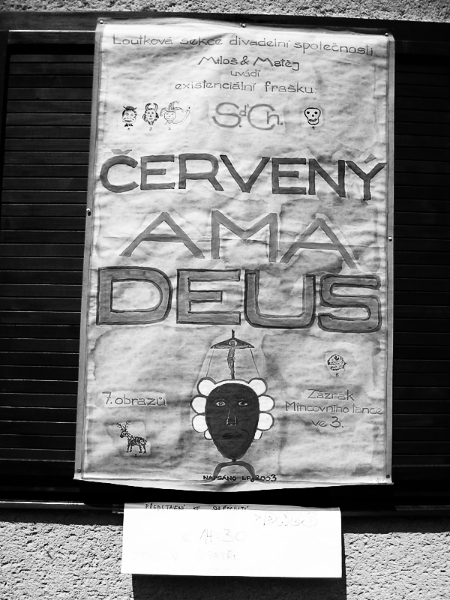 Loutková sekce divadelní společnosti
Miloš & Matěj
uvádí
existenciální frašku:
S.d.Ch.
ČERVENÝ
AMA
DEUS
7. obrazů
Zázrak
Mincovního tance
ve 3.
NAPSÁNO LP. 2003
14:30